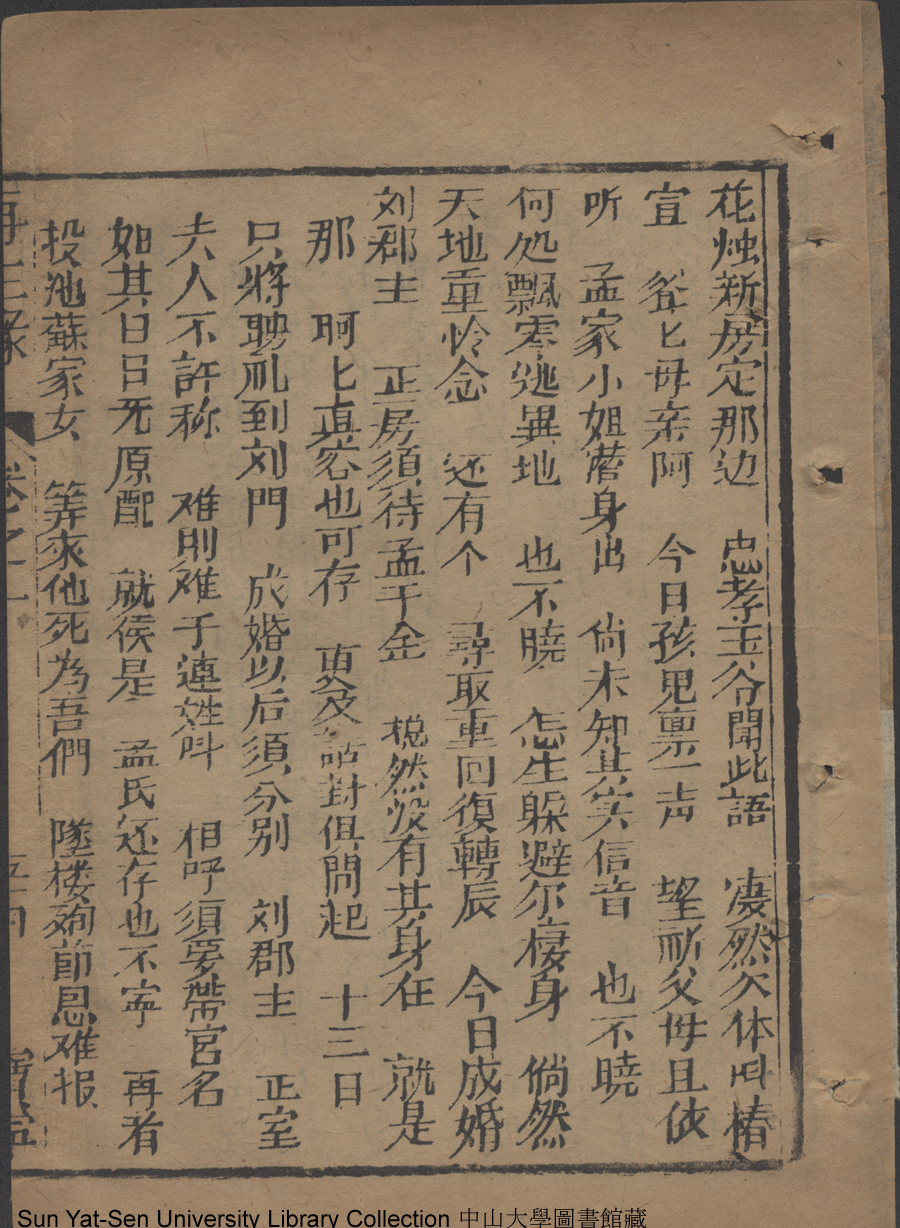 花烛新房定那边　忠孝王爷聞此語　凄然欠体叫椿
宣　爷匕母亲阿　今日孩児禀一声　望祈父母且依
听　孟家小姐潜身出　倘未知其实信音　也不曉
何处飄零迯異地　也不曉　怎生躲避尔棲身　倘然
天地重怜念　还有个　尋取重回復轉辰　今日成婚
刘郡主　正房須待孟千金　梲然没有其身在　就是
那　啊匕真容也可存　更及　對俱問起　十三日
只將聘礼到刘門　成婚以后須分别　刘郡主　正室
夫人不許称　难則难于連姓叫　相呼須要帶官名
如其日日无原配　就侯是　孟氏还存也不寧　再者
投池蘇家女　等來他死為吾們　墜楼殉節恩难报
再生缘　卷之十一